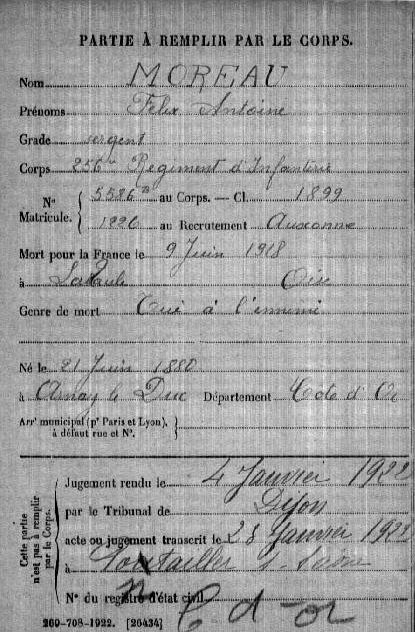 PARTIE À REMPLIR PAR LE CORPS.
Nom MOREAU
Prénoms Félix Antoine
Grade sergent
Corps 256e Régiment d'Infanterie
N° Matricule. 5586 au Corps. — Cl. 1899
1226 au Recrutement Auxonne
Mort pour la France le 9 Juin 1918
à Oise
Genre de mort Tué à l'ennemi
Né le 21 Juin 1880
à Arnay le Duc Département Cote d'Or
Arrt municipal (pr Paris et Lyon), à défaut rue et N°.
Cette partie n'est pas à remplir par le Corps.
Jugement rendu le 4 Janvier 1922
par le Tribunal de Dijon
acte ou jugement transcrit le 28 Janvier 1922
à Pontailler s. Saône
N° du registre d'état civil
C. d'or
260-708-1922. [26434]